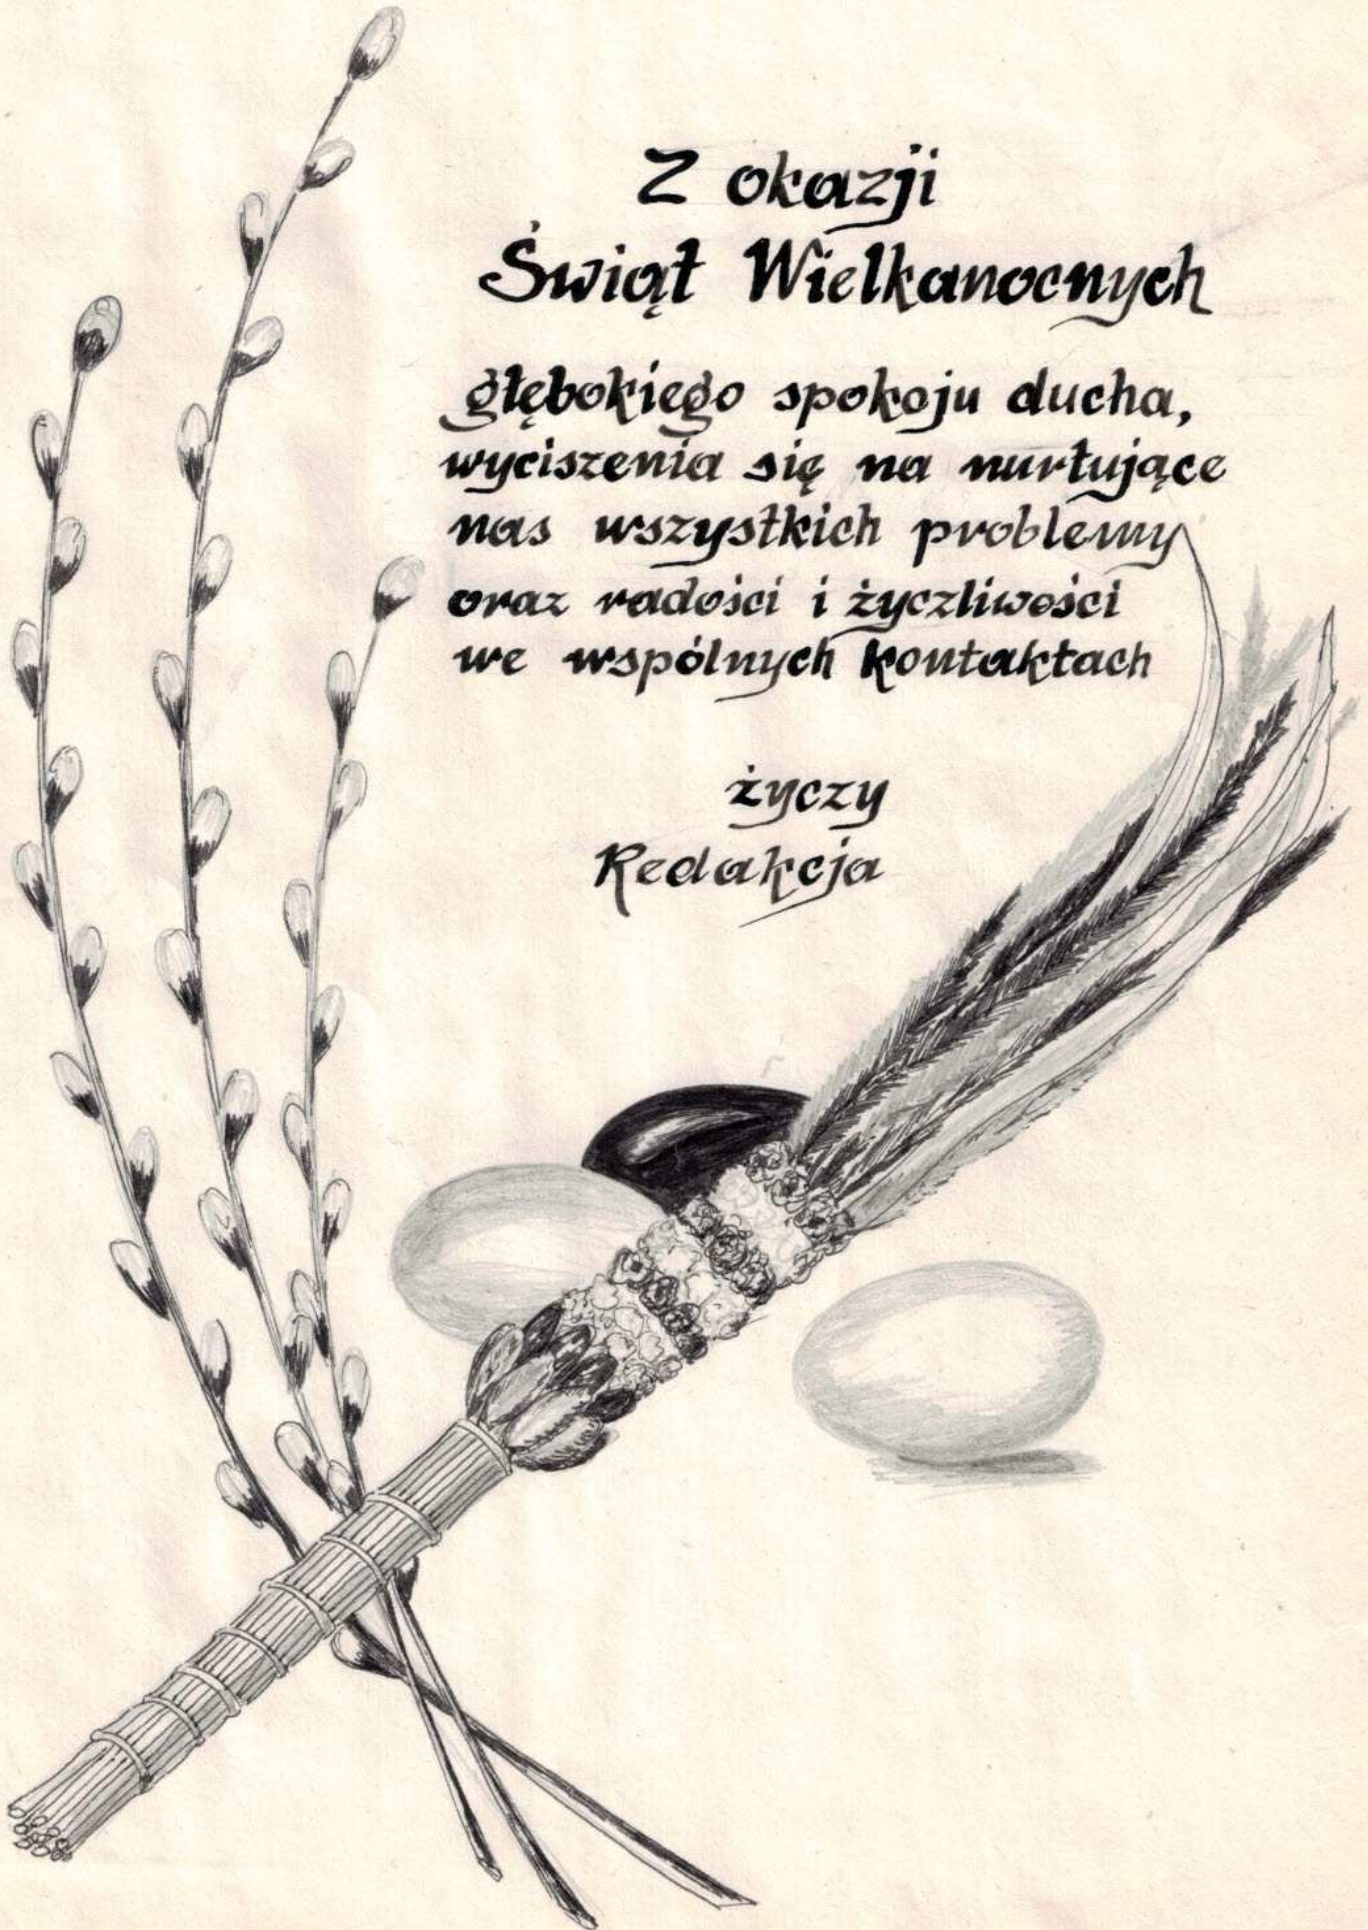 Z okazji
Świąt Wielkanocnych
głębokiego spokoju ducha,
wyciszenia się na nurtujące
nas wszystkich problemy
oraz radości i życzliwości
we wspólnych kontaktach
życzy
Redakcja